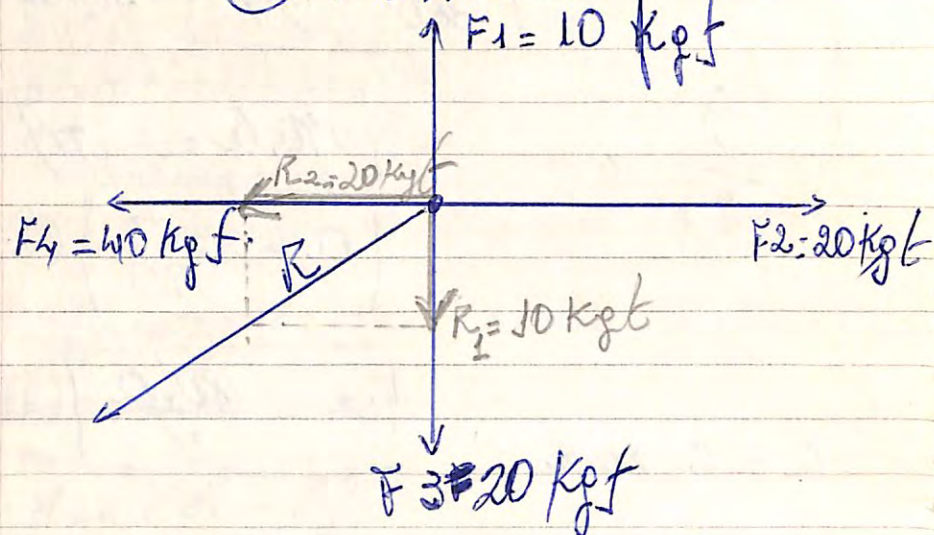 F1 = 10 Kgf
R2=20Kgf
F4 = 40 Kgf
F2=20Kgf
R
R1=10 Kgf
F3=20 Kgf